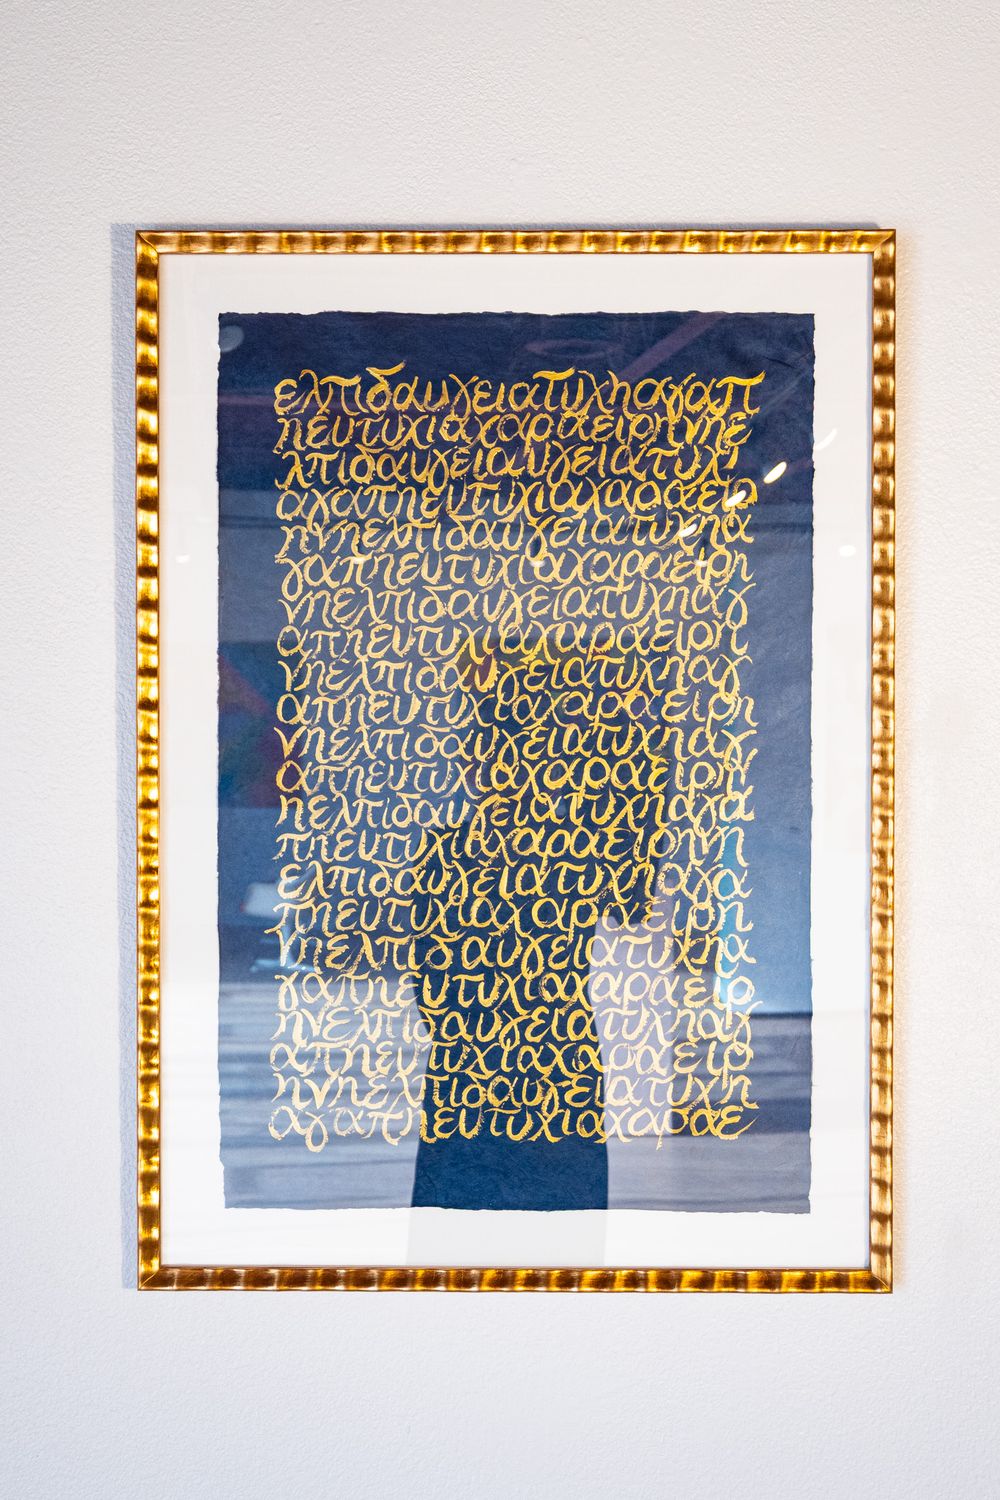 ελπιδαυγειατυχηαγαπ
ηευτυχιαχαραειρηνηε
λπιδαυγειαυγειατυχι
αγαπηευτυχιαχαραειρ
ηνηελπιδαυγειατυχηα
γαπηευτυχιαχαραειρη
νηελπιδαυγειατυχηαγ
απηευτυχιαχαραειρη
νηελπιδαυγειατυχηαγ
απηευτυχιαχαραειρη
νηελπιδαυγειατυχηαγ
απηευτυχιαχαραειρη
ηελπιδαυγειατυχηαγα
πηευτυχιαχαραειρηνη
ελπιδαυγειατυχηαγα
πηευτυχιαχαραειρη
νηελπιδαυγειατυχηα
γαπηευτυχιαχαραειρ
ηνελπιδαυγειατυχηαγ
απηευτυχιαχαραειρ
ηνηελπιδαυγειατυχη
αγαπηευτυχιαχαραε